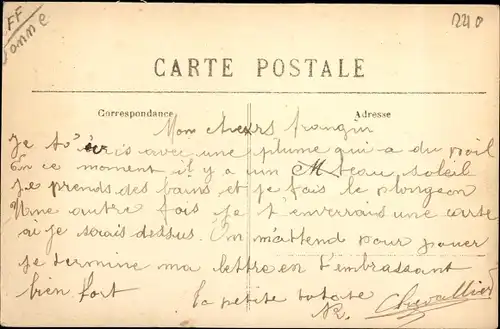 FF
Yonne
2210
CARTE POSTALE
Correspondance
Adresse
Mon chers frangin
Je t'écris avec une plume qui a du poil
En ce moment il y a un beau soleil
je prends des bains et je fais le plongeon
Une autre fois je t'enverrais une carte
ou je serais dessus. On m'attend pour jouer
je termine ma lettre en t'embrassant
bien fort
la petite
R. Chevallier